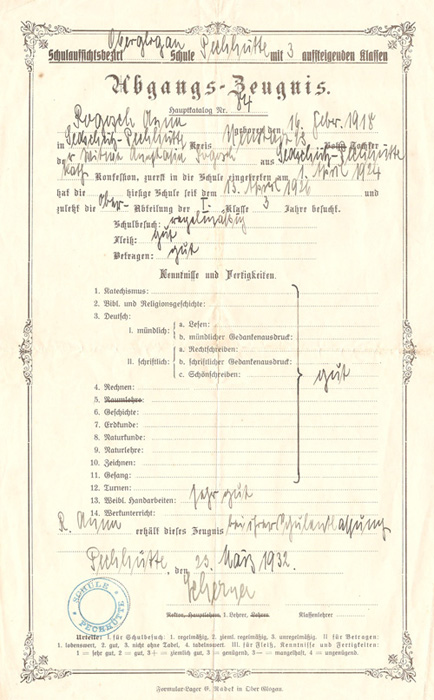 Schulaufsichtsbezirk Oberglogau Schule Pechhütte mit 3 aufsteigenden Klassen
Abgangs-Zeugnis.
Hauptkatalog Nr. 84
Rogosch Anna geboren den 16. Febr. 1918
in Pechhütte Kreis Neustadt OS Sohn Tochter
der Witwe Rogosch aus Pechhütte
kath. Konfession, zuerst in die Schule eingetreten am 1. April 1924
hat die hiesige Schule seit dem 15. April 1926 und
zuletzt die Ober- Abteilung der I. Klasse 3 Jahre besucht.
Schulbesuch: regelmässig
Fleiß: gut
Betragen: gut
Kenntnisse und Fertigkeiten.
1. Katechismus:
2. Bibl. und Religionsgeschichte:
3. Deutsch:
I. mündlich: a. Lesen:
b. mündlicher Gedankenausdruck:
II. schriftlich: a. Rechtschreiben:
b. schriftlicher Gedankenausdruck:
c. Schönschreiben:
gut
4. Rechnen:
5. Raumlehre:
6. Geschichte:
7. Erdkunde:
8. Naturkunde:
9. Naturlehre:
10. Zeichnen:
11. Gesang:
12. Turnen:
13. Weibl. Handarbeiten: sehr gut
14. Werkunterricht:
R. Anna erhält dieses Zeugnis bei ihrer Schulentlassung
Pechhütte, den 23. März 1932.
SCHULE PECHHÜTTE
Rektor, Hauptlehrer, 1. Lehrer, Lehrer Klassenlehrer
Urteile: I. für Schulbesuch: 1. regelmäßig, 2. ziemL regelmäßig, 3. unregelmäßig. II für Betragen:
1. lobenswert, 2. gut, 3. nicht ohne Tadel, 4. tadelnswert. III. für Fleiß, Kenntnisse und Fertigkeiten:
1 = sehr gut, 2 = gut, 3+ = ziemlich gut, 3 = genügend, 3— = mangelhaft, 4 = ungenügend.
Formular-Lager E. Radek in Ober Glogau.